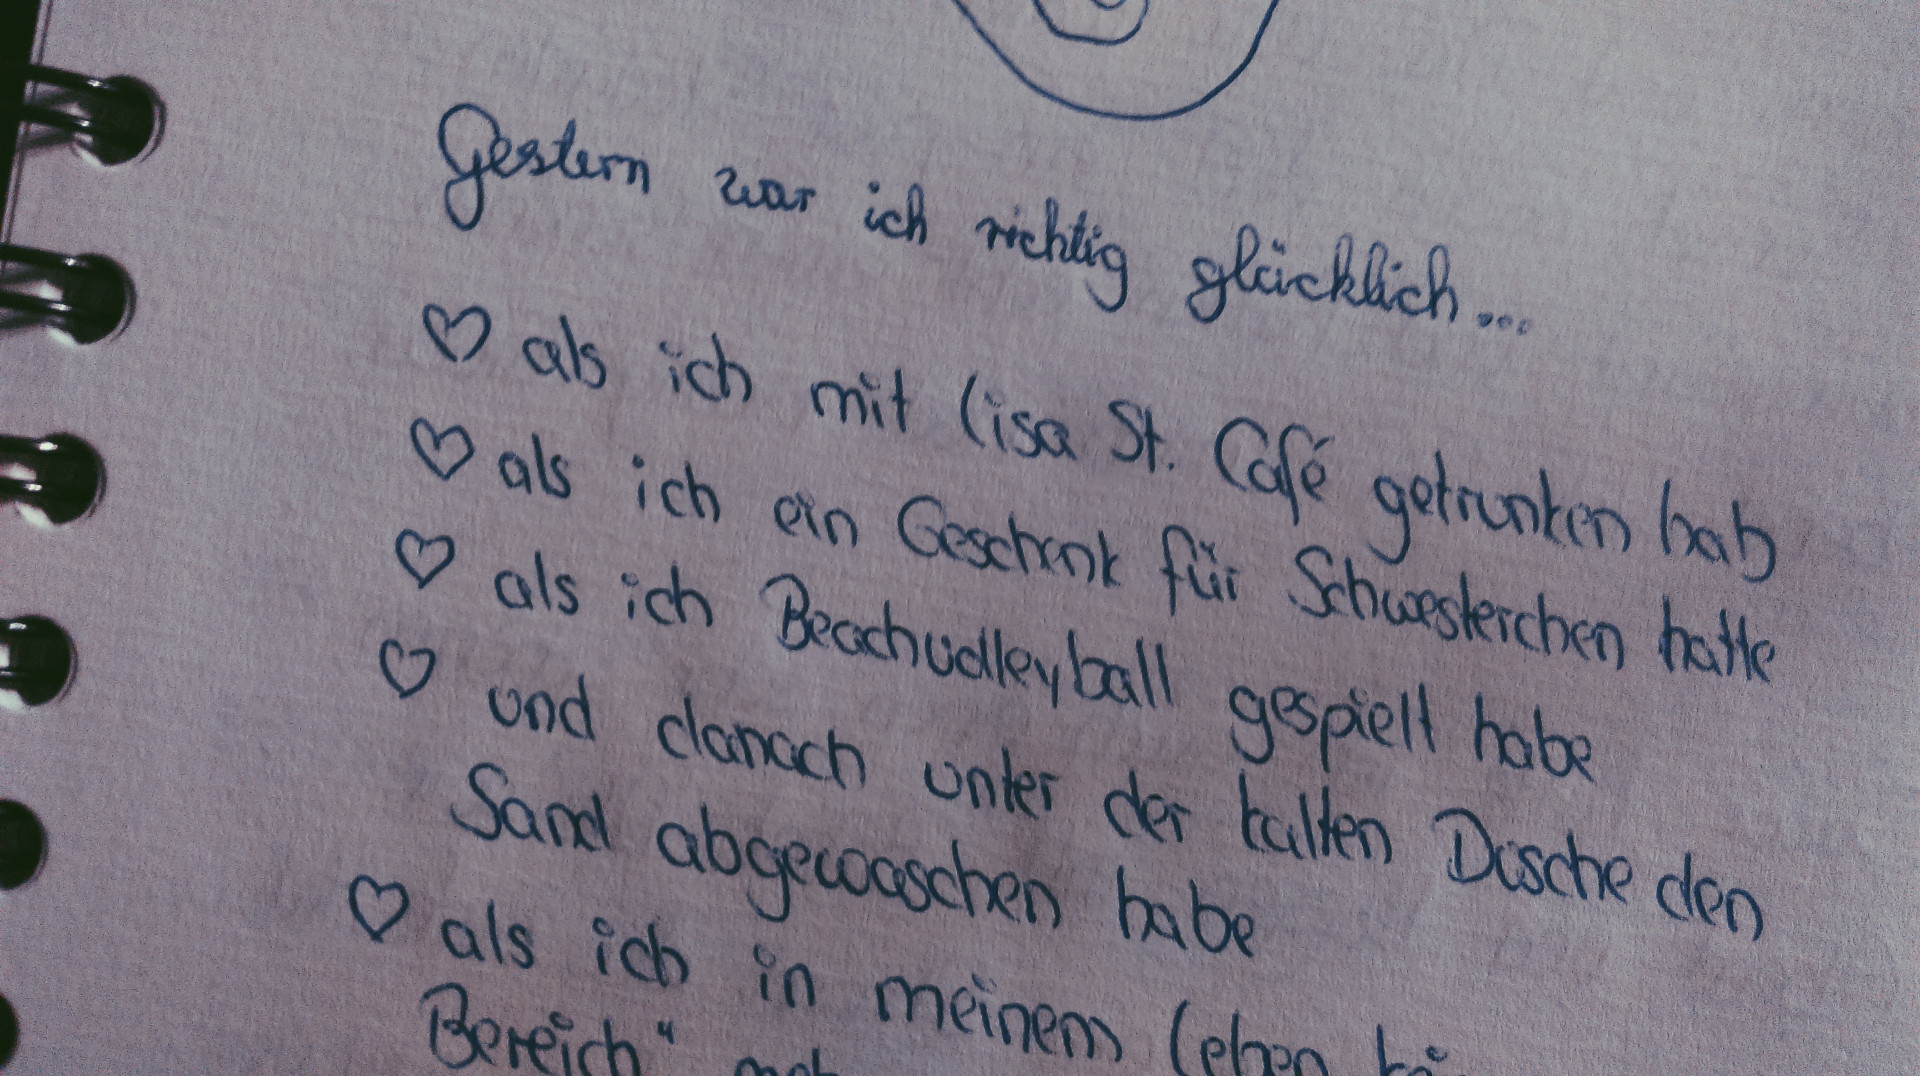 Gestern war ich richtig glücklich...
♡ als ich mit Lisa St. Café getrunken hab
♡ als ich ein Geschenk für Schwesterchen hatte
♡ als ich Beachvolleyball gespielt habe
♡ und danach unter der kalten Dusche den
Sand abgewaschen habe
♡ als ich in meinem Leben
Bereich"